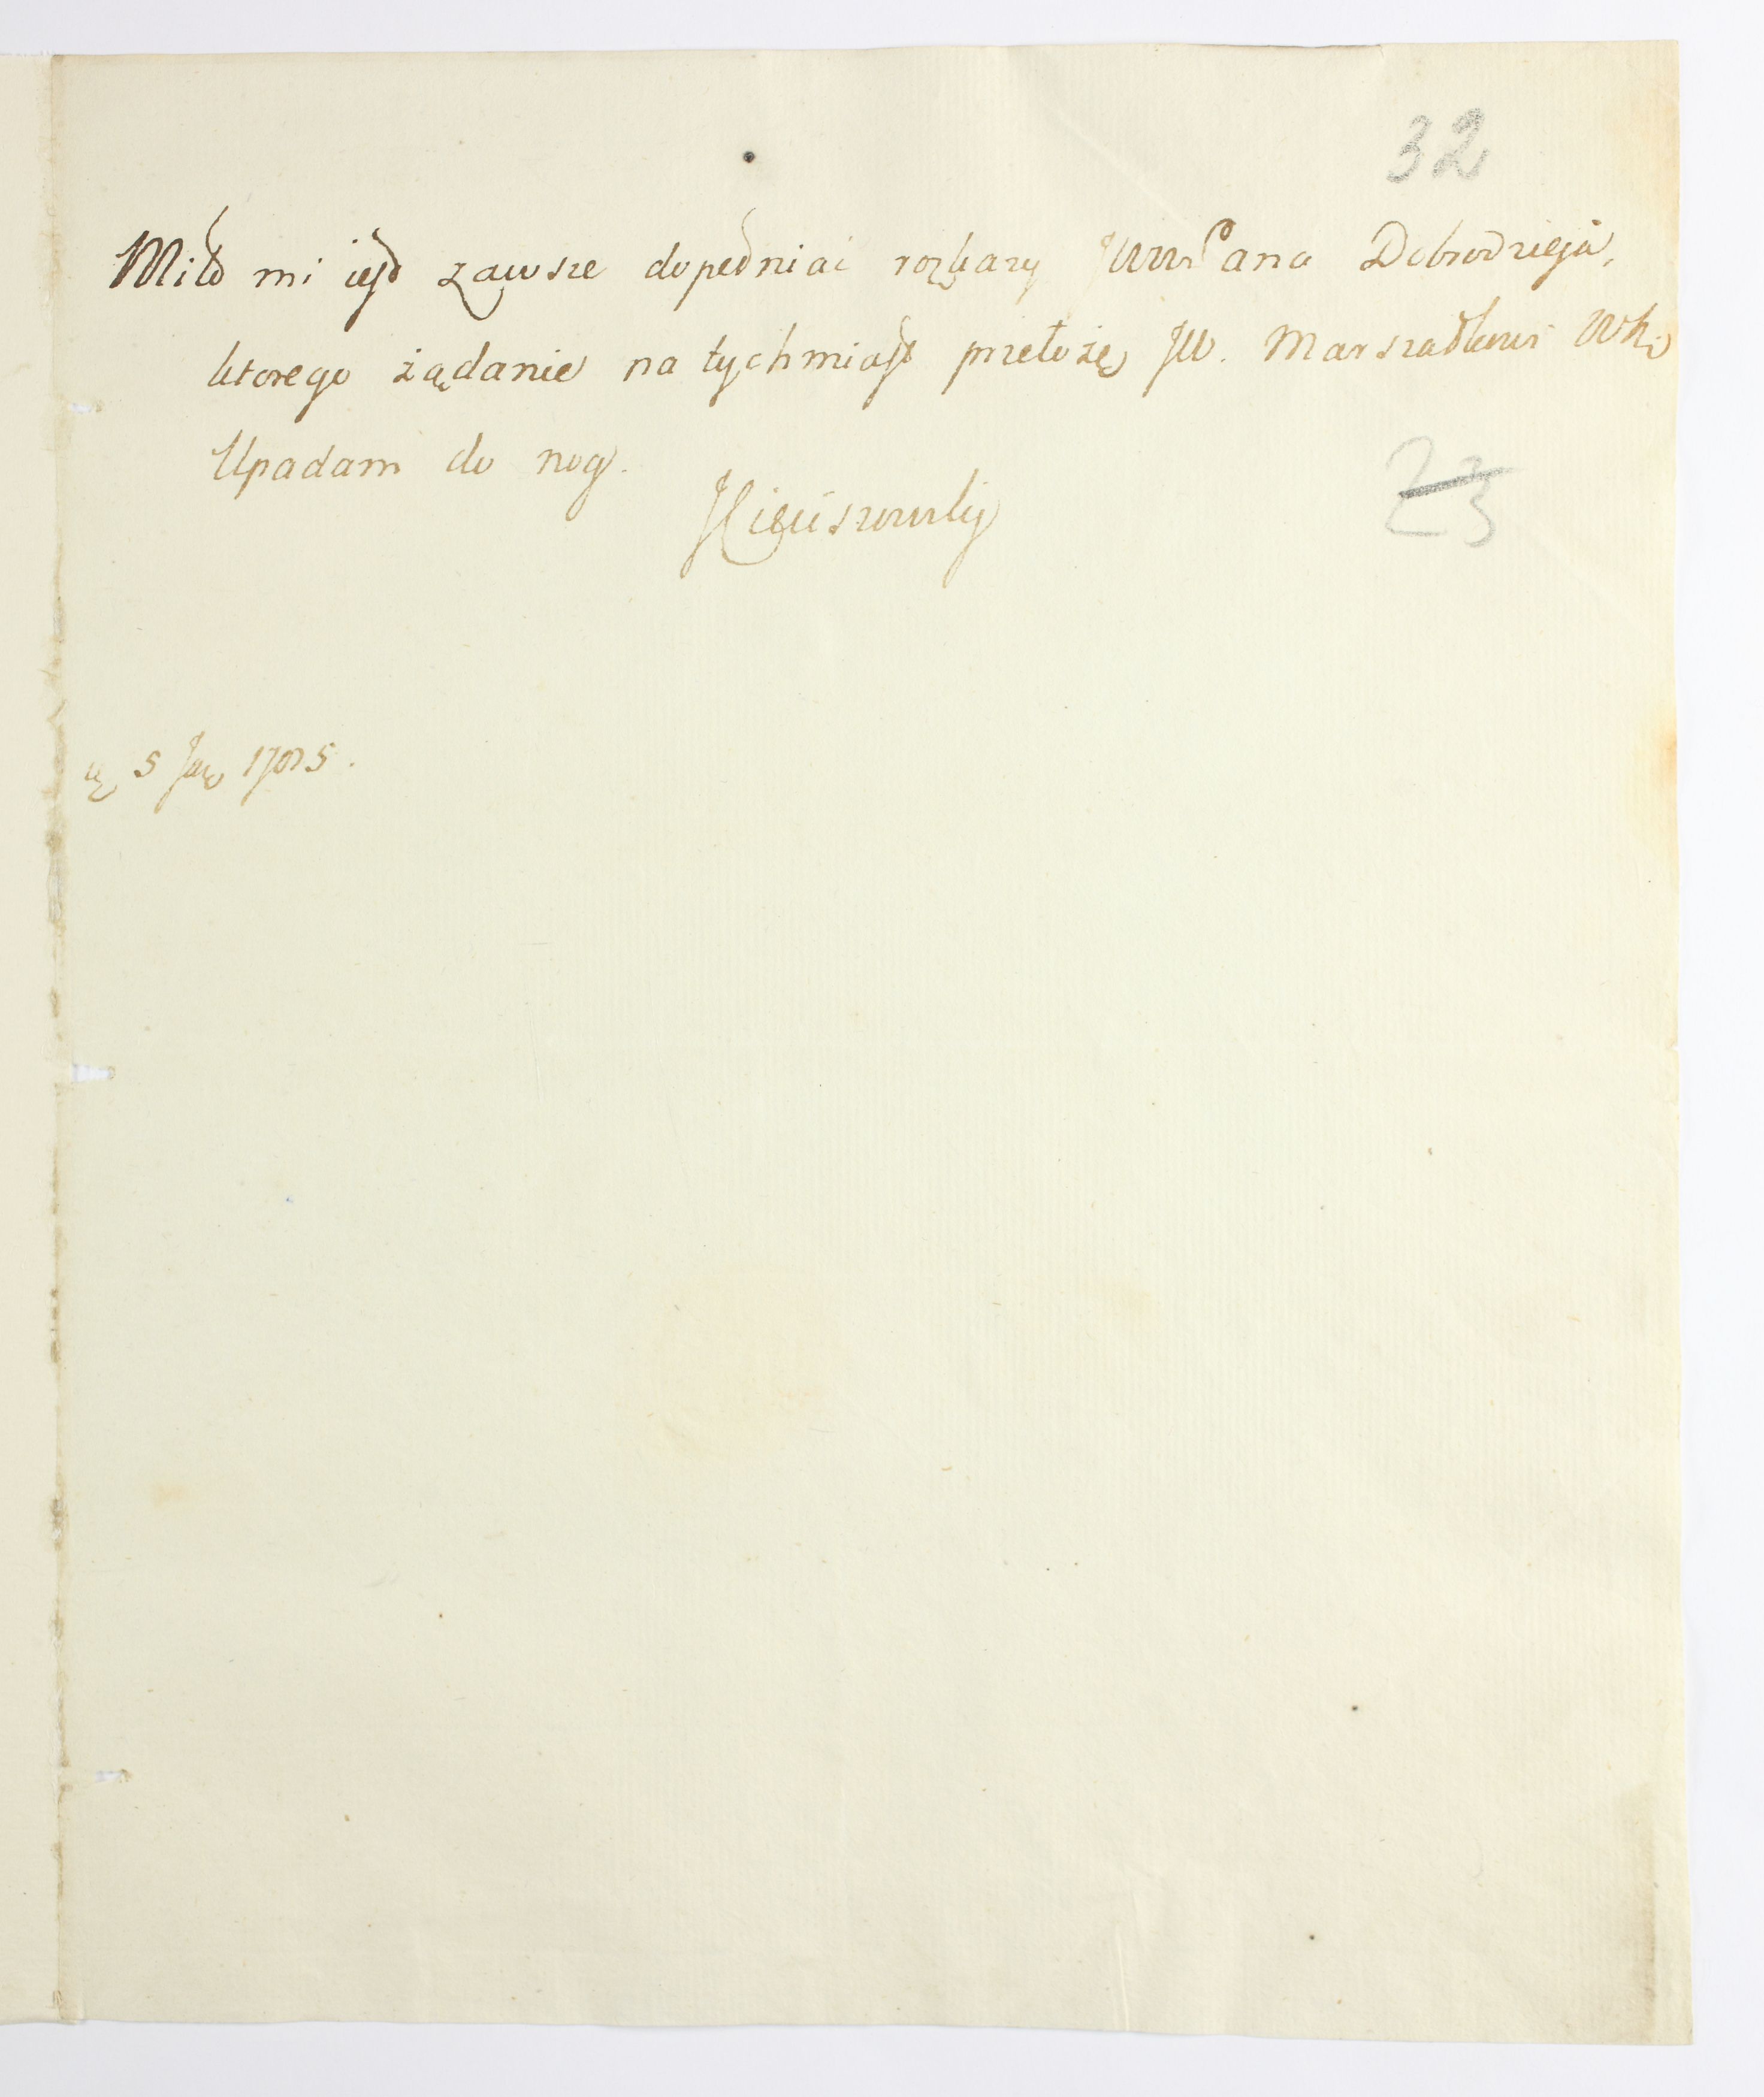 32
Miło mi iest zawsze dopełniać rozkazy JWW Pana Dobrodzieja,
ktorego żądanie na tychmiast przełożę JW. Marszałkowi WK
Upadam do nog.
23
5 1785.